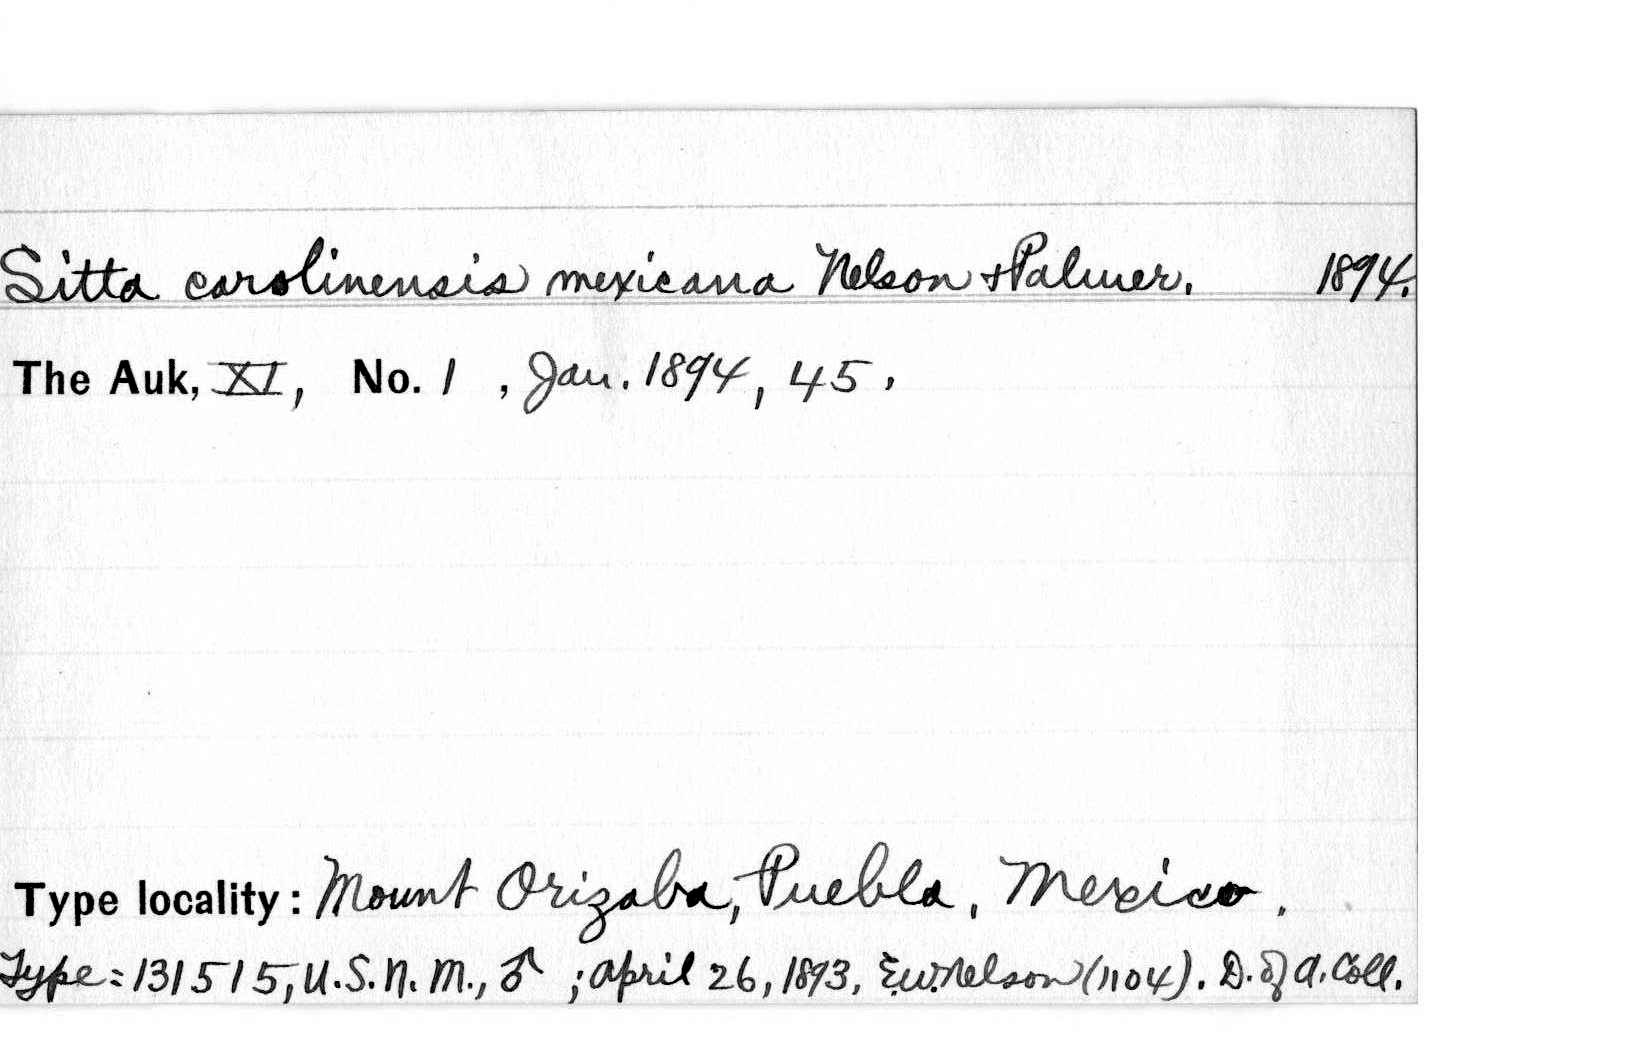 Sitta carolinensis mexicana Nelson & Palmer. 1894.
The Auk, XI, No. 1 , Jan. 1894, 45.
Type locality: Mount Orizaba, Puebla, Mexico.
Type: 131515, U.S.N.M., ♂ ; April 26, 1893, E.W. Nelson (1104). D. of A. Coll.